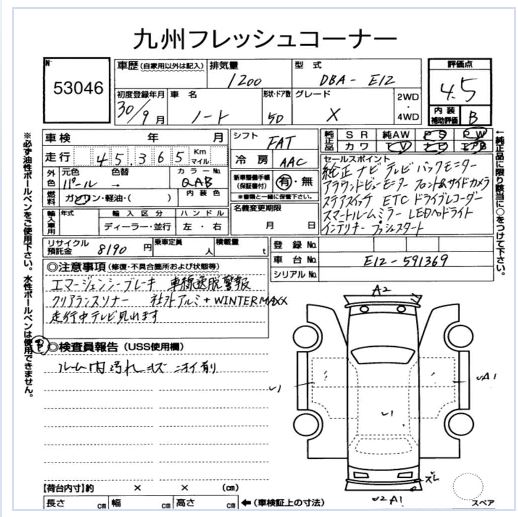 九州フレッシュコーナー
53046
車歴 (自家用以外は記入) 排気量 型式 評価点
1200 DBA-E12 4.5
初度登録年月 車名 形状・ドア数 グレード 2WD・4WD 内装補助評価 B
30/9月 ノート 5D X
車検 年 月 シフト FAT
純正品 SR 純AW PS PW
カワ TV ナビ エアB
走行 45,365 Km マイル 冷房 AAC
外 元色 色替 カラーNo.
パール → QAB
内装色
セールスポイント
純正ナビ テレビ バックモニター
アラウンドビューモニター フロント&サイドカメラ
ステアスイッチ ETC ドライブレコーダー
スマートルームミラー LEDヘッドライト
インテリキー プッシュスタート
新車整備手帳(保証書付) 有・無
※書類と一緒に保管下さい。
燃料 ガソリン・軽油・( )
名義変更期限 月 日
輸入車用 年式 輸入区分 ハンドル
ディーラー・並行 左・右
リサイクル預託金 8190 円 乗車定員 人 積載量 t
登録No.
車台No. E12-591369
シリアルNo.
◎注意事項 (修復・不具合箇所および状態等)
エマージェンシーブレーキ 車線逸脱警報
クリアランスソナー 社外アルミ+WINTER MAXX
走行中テレビ見れます
◎検査員報告 (USS使用欄)
ルーム内汚れ キズ ニオイ有
A2
U1
UA1
U1
キズ
U2 A1
スペア
【荷台内寸】約 × × (cm)
長さ cm 幅 cm 高さ cm ←(車検証上の寸法)
※必ず油性ボールペンをご使用下さい。水性ボールペンは使用できません。
←純正品に限り該当に○をつけて下さい。